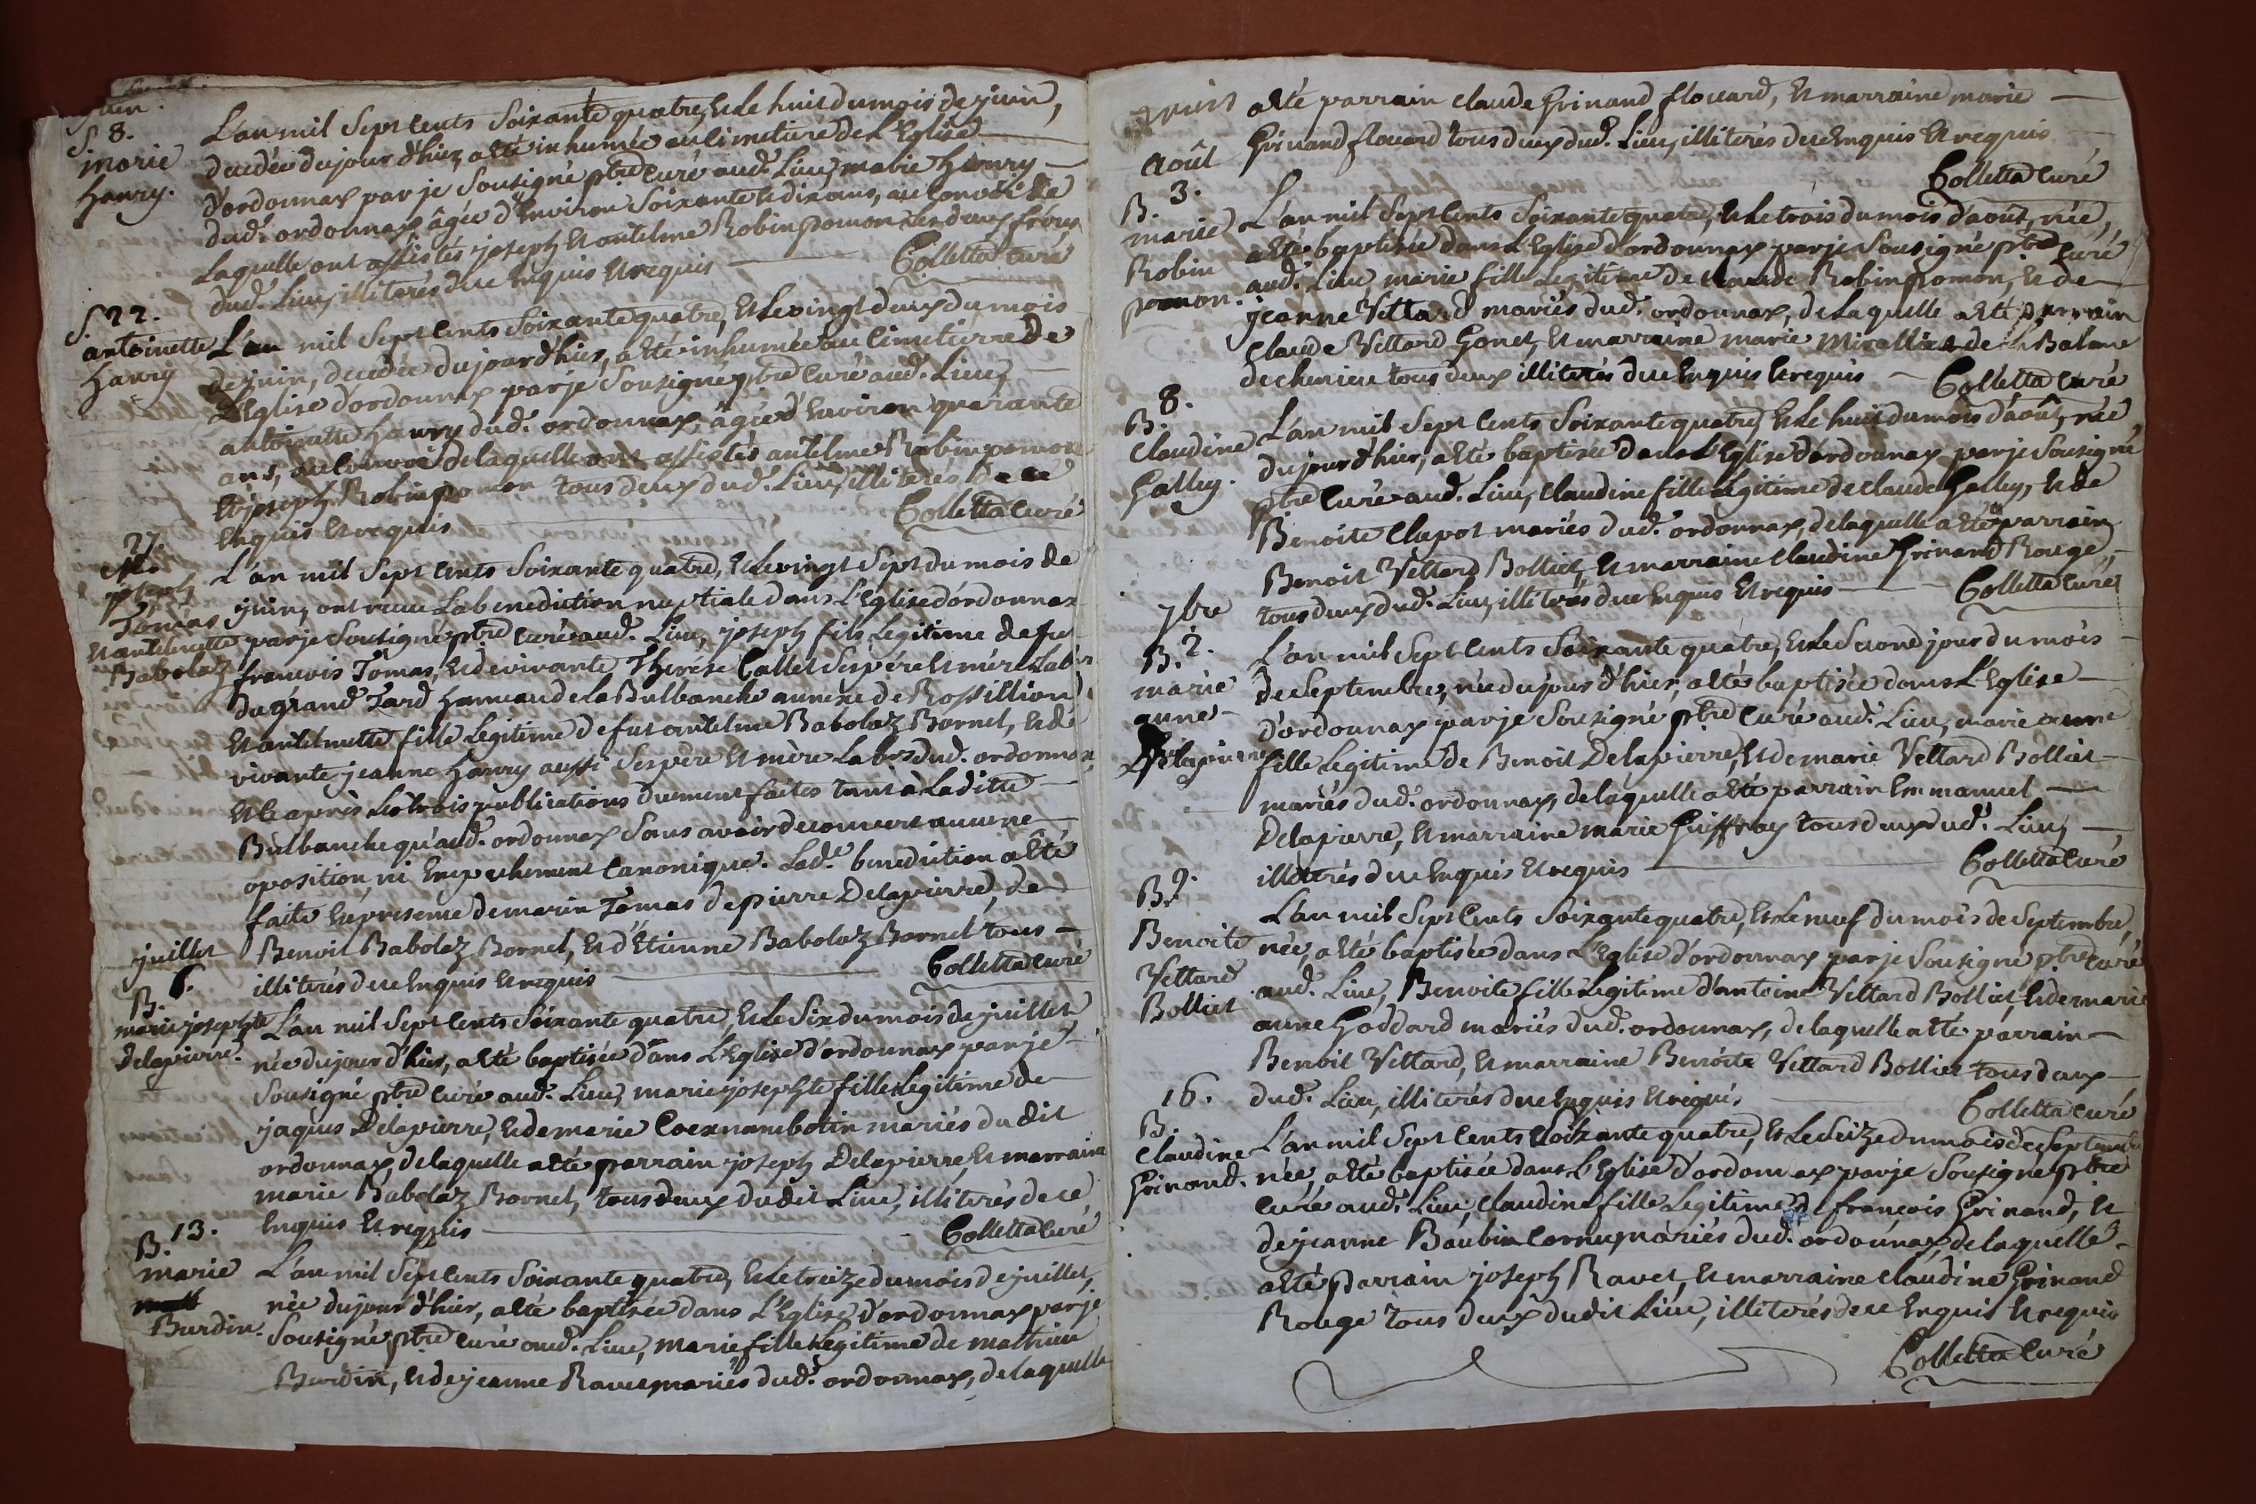 juin.
S. 8.
marie
hanry.
L'an mil Sept Cents Soixante quatre, Et Le huit du mois de juin,
decedée du jour d'hier, a Eté inhumée au Cimetiere de L'Eglise
d'ordonnax par je Sousigné ptre Curé aud. Lieu, marie hanry
dud. ordonnax, âgée d'Environ Soixante et dix ans, au Convoi de
Laquelle ont assistés joseph Et antelme Robin pomon les deux freres
dud. Lieu, illiterés de ce Enquis Et requis Colletta Curé
S. 22.
antoinette
hanry
L'an mil Sept Cents Soixante quatre, Et Le vingt deux du mois
de juin, decedée du jour d'hier, a Eté inhumée au Cimetierre de
L'Eglise d'ordonnax par je Sousigné ptre Curé aud. Lieu,
antoinette hanry dud. ordonnax, âgée d'Environ quarante
ans, au Convoi de laquelle ont assistés antelme Robin pomon
Et joseph Robin pomon tous deux dud. Lieu, illiterés de ce
Enquis Et requis Colletta Curé
27.
joseph
Tomas
Et antelmette
Babolaz
L'an mil Sept Cents Soixante quatre, Et Le vingt Sept du mois de
juin, ont recue La benediction nuptiale dans L'Eglise d'ordonnax
par je Sousigné ptre Curé aud. Lieu, joseph fils Legitime de fu
francois Tomas, Et de vivante Therése Callet Ses père Et mère Labrs
du grand Zard hameau de la Bulbanche annexe de Rossillion
Et antelmette fille Legitime de fut antelme Babolaz Bornet, Et de
vivante jeanne hanry aussi Ses père Et mère Labrs dud. ordonnax,
Et Ce après Les trois publications duement faites tant à Laditte
Bulbanche qu'aud. ordonnax Sans avoir decouvert aucune
oposition, ni Empechement Canonique. Lade benediction a Eté
faite En presence de marin Tomas de pierre Delapierre, de
Benoit Babolaz Bornet, Et d'Etienne Babolaz Bornet tous
illiterés de ce Enquis Et requis Colletta Curé
juillet
6.
B.
marie josephte
Delapierre.
L'an mil Sept Cents Soixante quatre, Et Le Six du mois de juillet
née du jour d'hier, a Eté baptisée dans L'Eglise d'ordonnax par je
Sousigné ptre Curé aud. Lieu, marie josephte fille Legitime de
jaques Delapierre, Et de marie Coex nambotin mariés du dit
ordonnax, de laquelle a Eté parrain joseph Delapierre, Et marraine
marie Babolaz Bornet, tous deux du dit Lieu, illiterés de ce
Enquis Et requis Colletta Curé
B. 13.
marie
Burdin.
L'an mil Sept Cents Soixante quatre, Et Le treize du mois de juillet,
née du jour d'hier, a Eté baptisée dans L'Eglise d'ordonnax par je
Sousigné ptre Curé aud. Lieu, marie fille Legitime de mathieu
Burdin, Et de jeanne Ravet mariés dud. ordonnax, de laquelle
a Eté parrain Claude Grinand flouard, Et marraine marie
Grinand flouard tous deux dud. Lieu, illiterés de ce Enquis Et requis
Colletta Curé
août
B. 3.
marie
Robin
pomon.
L'an mil Sept Cents Soixante quatre, Et Le trois du mois d'août, née,
a Eté baptisée dans L'Eglise d'ordonnax par je Sousigné ptre Curé
aud. Lieu, marie fille Legitime de Claude Robin pomon, Et de
jeanne Vettard mariés dud. ordonnax, de Laquelle a Eté parrain
Claude Vettard Gonet, Et marraine marie de la Balme
de chenieu tous deux illiterés de ce Enquis Et requis Colletta Curé
8.
B.
Claudine
Galley.
L'an mil Sept Cents Soixante quatre, Et Le huit du mois d'août, née
du jour d'hier, a Eté baptisée dans L'Eglise d'ordonnax par je Sousigné
ptre Curé aud. Lieu, Claudine fille Legitime de Claude Galley, Et de
Benoite Clapot mariés dud. ordonnax, de laquelle a Eté parrain
Benoit Vettard Bolliet, Et marraine Claudine Grinand Rouge,
tous deux dud. Lieu, illiterés de ce Enquis Et requis Colletta Curé
7bre
B. 2.
marie
anne
Delapierre
L'an mil Sept Cents Soixante quatre, Et Le Second jour du mois
de Septembre, née du jour d'hier, a Eté baptisée dans L'Eglise
d'ordonnax par je Sousigné ptre Curé aud. Lieu, marie anne
fille Legitime de Benoit Delapierre, Et de marie Vettard Bolliet
mariés dud. ordonnax, de laquelle a Eté parrain Emmanuel
Delapierre, Et marraine marie Guiffray tous deux dud. Lieu,
illiterés de ce Enquis Et requis Colletta Curé
B. 9.
Benoite
Vettard
Bolliet
L'an mil Sept Cents Soixante quatre, Et Le neuf du mois de Septembre,
née, a Eté baptisée dans L'Eglise d'ordonnax par je Sousigné ptre Curé
aud. Lieu, Benoite fille Legitime d'antoine Vettard Bolliet, Et de marie
anne Goddard mariés dud. ordonnax, de laquelle a Eté parrain
Benoit Vettard, Et marraine Benoite Vettard Bolliet tous deux
dud. Lieu, illiterés de ce Enquis Et requis Colletta Curé
16.
B.
Claudine
Grinand.
L'an mil Sept Cents Soixante quatre, Et Le Seize du mois de Septembre
née, a Eté baptisée dans L'Eglise d'ordonnax par je Sousigné ptre
Curé aud. Lieu, Claudine fille Legitime de françois Grinand, Et
de jeanne Baubin Cornu mariés dud. ordonnax, de laquelle
a Eté parrain joseph Ravet, Et marraine Claudine Grinand
Rouge tous deux dudit Lieu, illiterés de ce Enquis Et requis
Colletta Curé